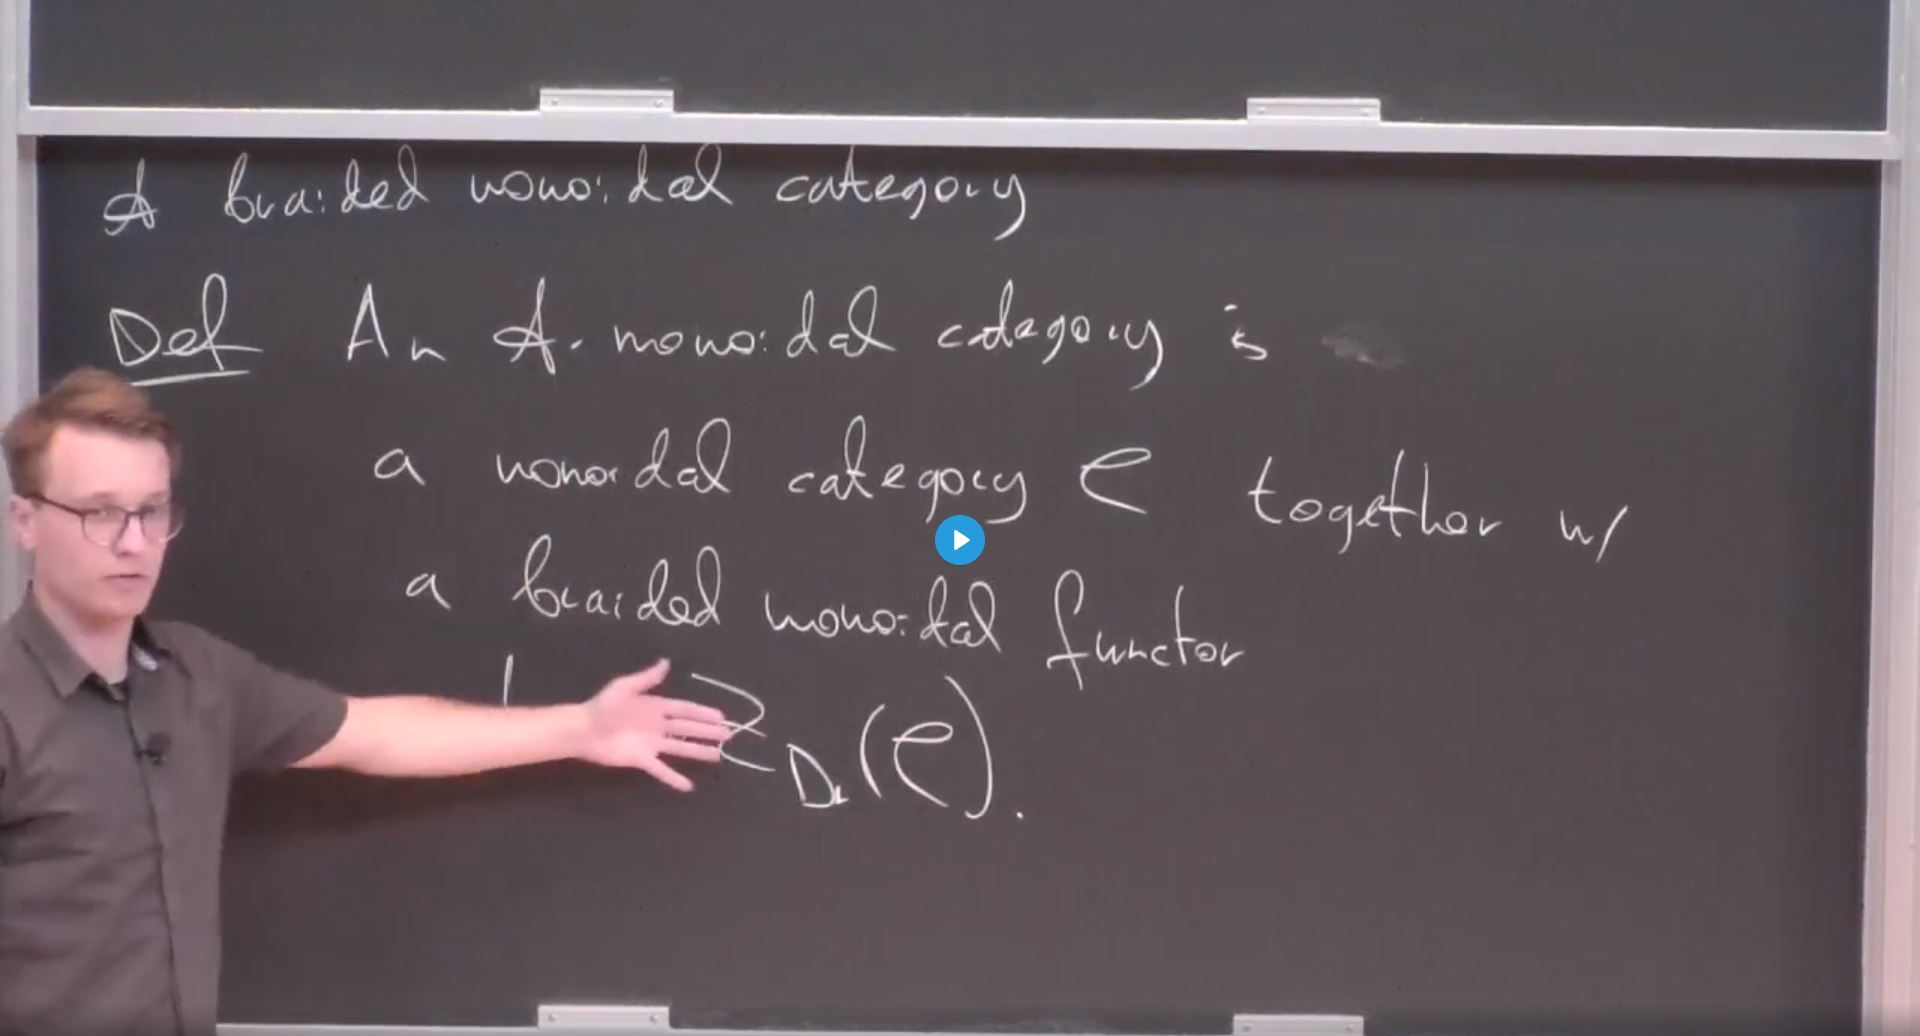 𝒜 braided monoidal category
Def An 𝒜-monoidal category is
a monoidal category 𝒞 together w/
a braided monoidal functor
Z_Dr(𝒞).